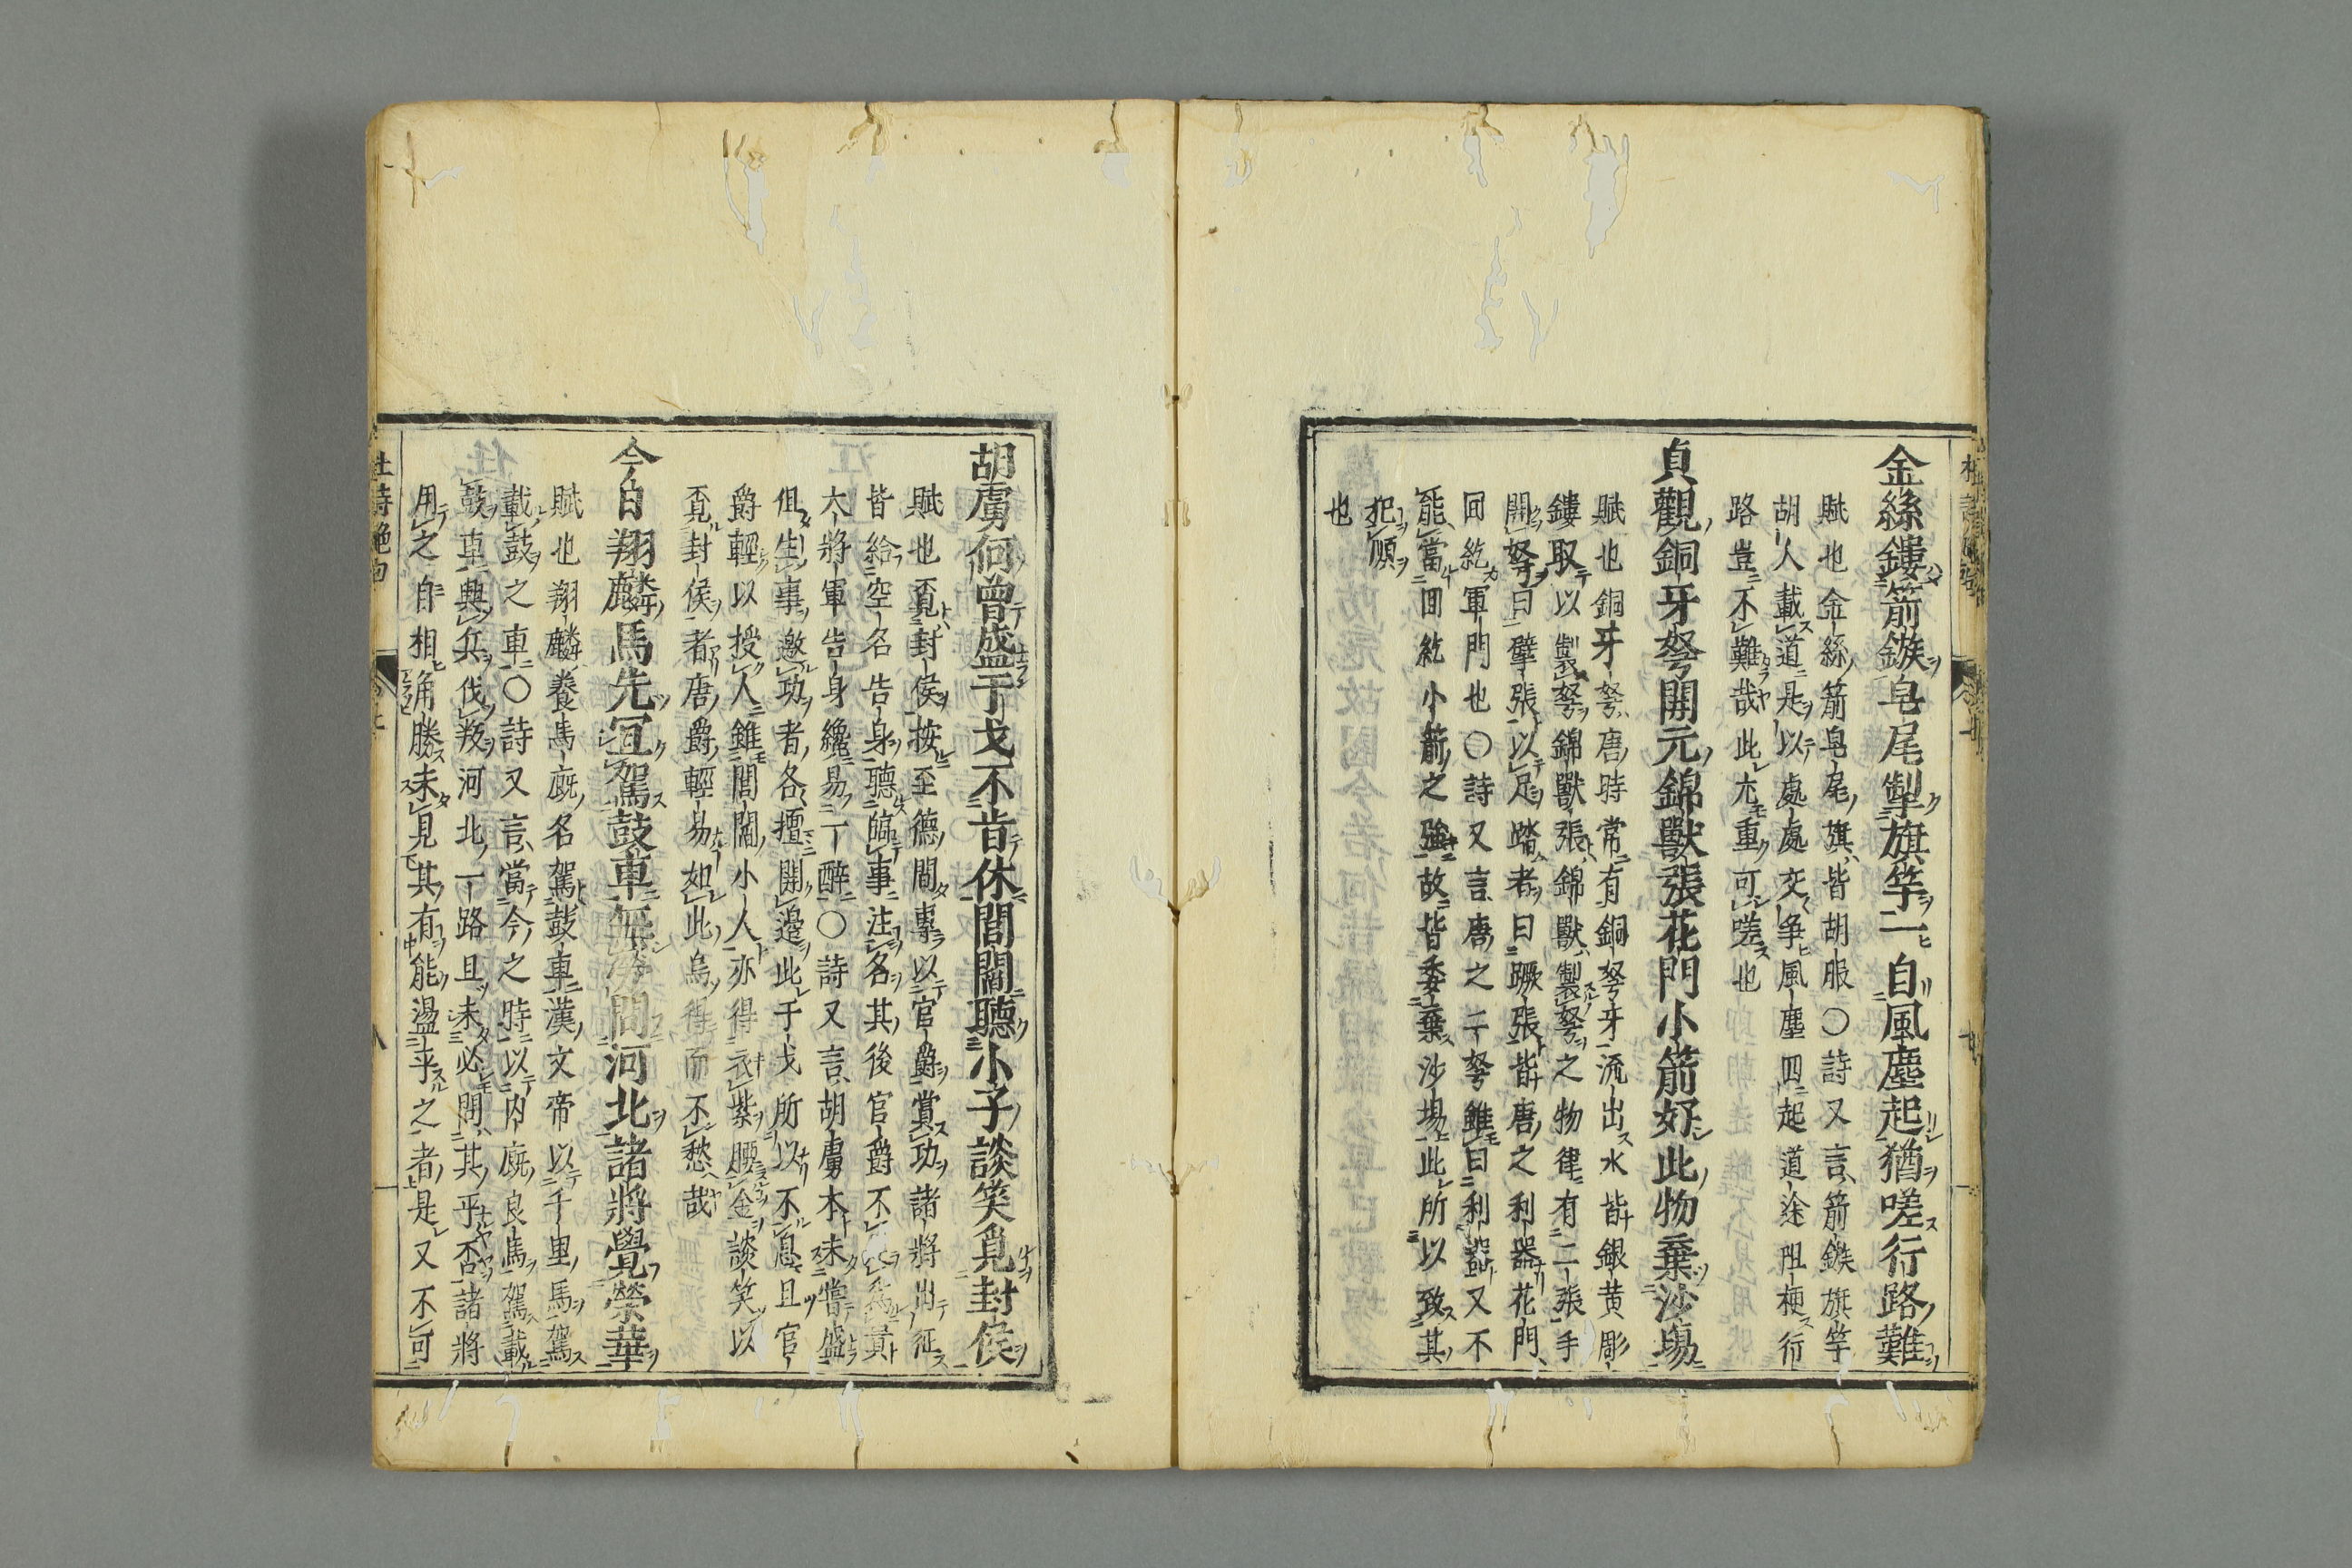 金絲鏤箭鏃皂尾掣旗竿一自風塵起猶嗟行路難
賦也金絲箭皂尾旗皆胡服〇詩又言箭鏃旗竿
胡人載道是以處處交爭風塵四起道途阻梗行
路豈不難哉此尤重可嗟也
貞觀銅牙弩開元錦獸張花門小箭好此物棄沙場
賦也銅牙弩唐時常有銅弩牙流出水皆銀黄彫
鏤取以製弩錦獸張錦獸製弩之物律有二張手
開弩曰擘張以足踏者曰蹶張皆唐之利器花門
囘紇軍門也〇詩又言唐之二弩雖曰利器又不
能當囘紇小箭之強故皆委棄沙場此所以致其
犯順
也
胡虜何曾盛干戈不肯休閭閻聽小子談笑覓封侯
賦也覓封侯按至德間專以官爵賞功諸將出征
皆給空名告身聽臨事注名其後官爵不
大將軍告身纔易一醉〇詩又言胡虜本未嘗盛
但生事邀功者各擅開邊此干戈所以不息且官
爵輕以授人雖閭閻小人亦得衣紫腰金談笑以
覓封侯者唐爵輕易如此烏得而不愁哉
今日翔麟馬先冝駕鼓車無勞問河北諸將覺榮華
賦也翔麟養馬廐名駕鼓車漢文帝以千里馬駕
載鼓之車〇詩又言當今之時以内廐良馬駕載
鼓車興兵伐叛河北一路且未必問其平否諸將
用之自相角勝未見其有能盪平之者是又不可
杜詩絶句